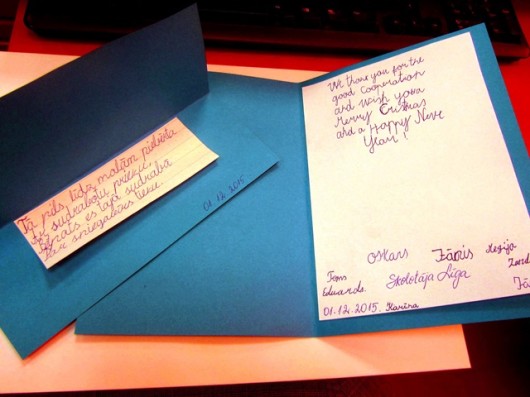 Tā pils līdz malām piebirta
Ar sudrabotu prieku.
es tajā sudrabā
sniegavīrs tieku.
01.12.2015
We thank you for the
good Cooperation
and wish you a
Merry Cristmas
and a Happy New
Year!
Oskars Jānis Kegija
Toms
Eduards. Skolotāja Līga
01.12.2015. Karīna